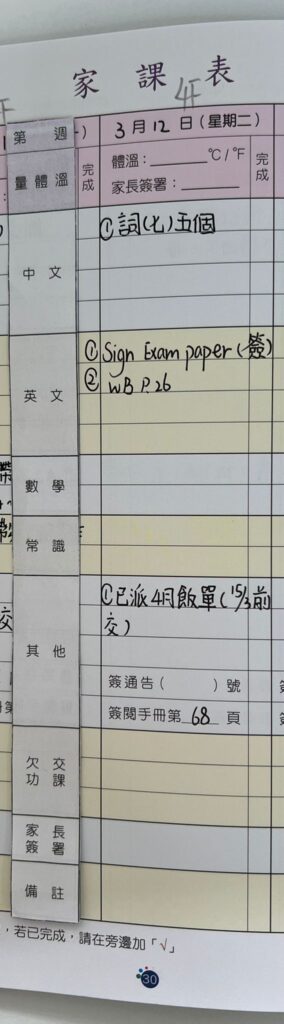 家課表
4F
第 週
3月12日(星期二)
量體溫
體溫:______℃/℉
家長簽署:______
完成
完成
中文
①詞(七)五個
英文
①Sign Exam paper(簽)
②WB P.26
數學
常識
其他
①已派4月飯單(15/3前
交)
簽通告( )號
簽閱手冊第 68 頁
欠交
功課
家長
簽署
備註
,若已完成,請在旁邊加「√」
30